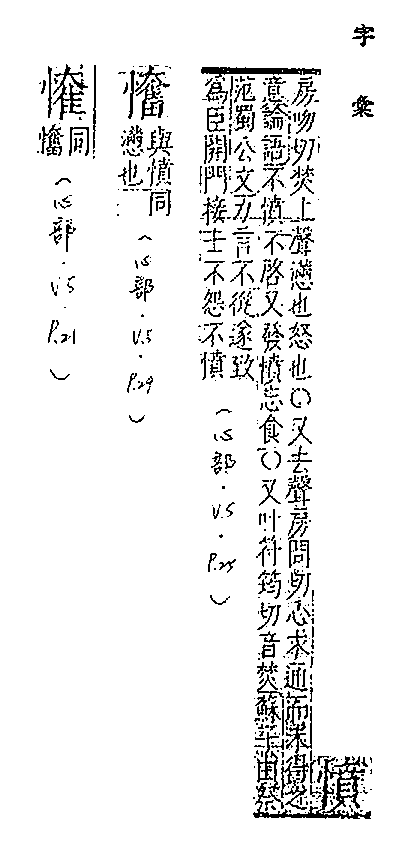 字彙
憤
房吻切焚上聲懣也怒也〇又去聲房問切心求通而未得之
意論語不憤不啓又發憤忘食〇又叶符筠切音焚蘇子由祭
范蜀公文力言不從遂致
為臣開門接士不怨不憤
（心部·V.5·P.25）
與憤同
懣也
（心部·V.5·P.29）
同
（心部·V.5·P.21）